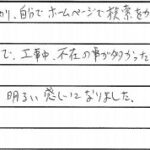 り、自分でホームページで検索をか
で、工事中、不在の事が多かった
明るい感じになりました。